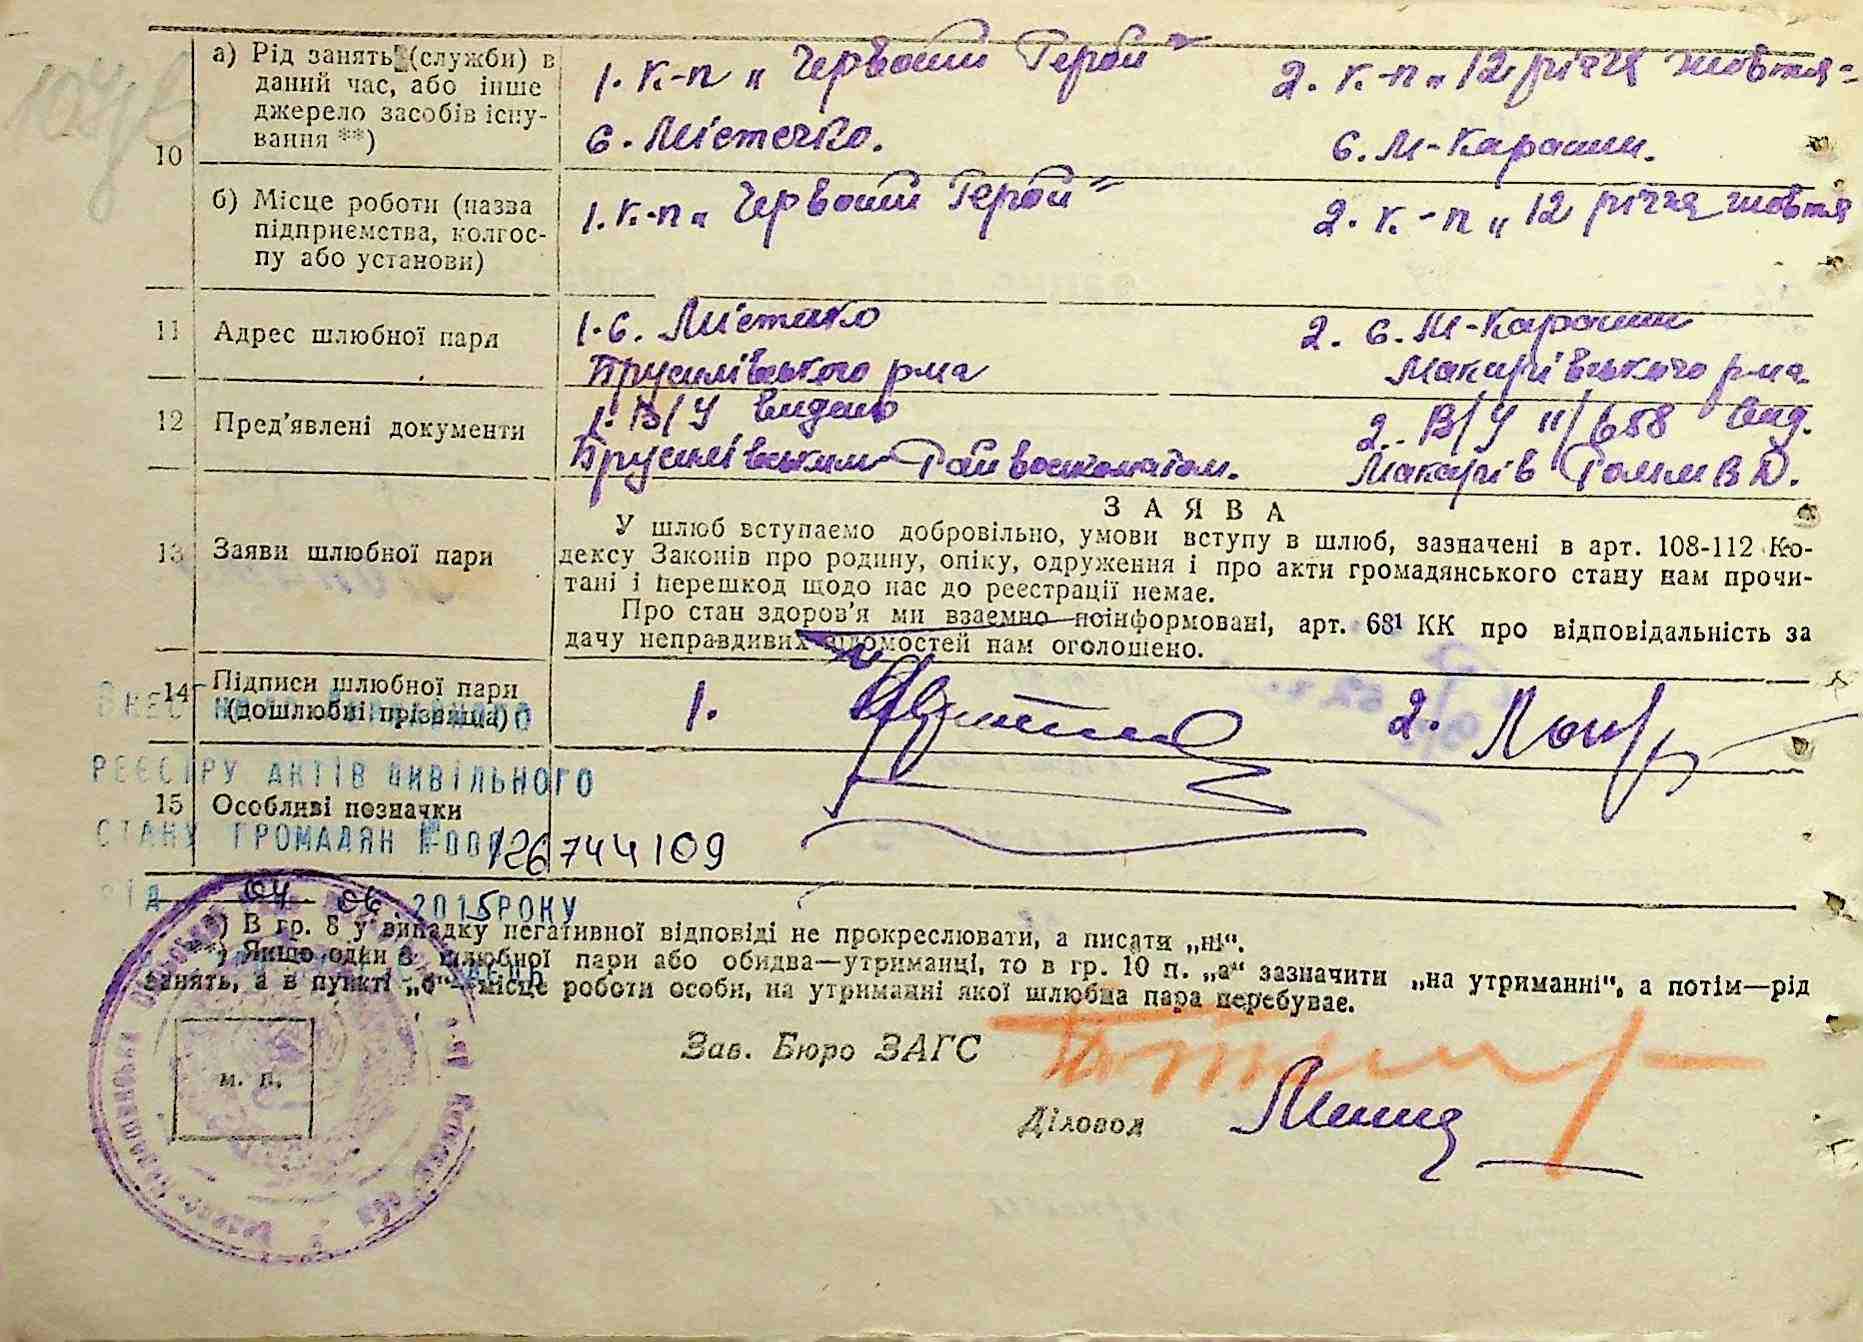 10 а) Рід занять (служби) в даний час, або інше джерело засобів існування **)
1. К-п „Червоний Герой"
с. Містечко.
2. К-п „12 річчя жовтня"
с. М-Карашин.
б) Місце роботи (назва підприємства, колгоспу або установи)
1. К-п „Червоний Герой"
2. К-п „12 річчя жовтня
11 Адрес шлюбної пари
1. с. Містечко
Брусилівського р-на
2. с. М-Карашин
Макарівського р-на
12 Пред'явлені документи
1. В/У видено
Брусилівським Райвоєнкоматом.
2. В/У II/658 вид.
Макарів
13 Заяви шлюбної пари
ЗАЯВА
У шлюб вступаємо добровільно, умови вступу в шлюб, зазначені в арт. 108-112 Ко-
дексу Законів про родину, опіку, одруження і про акти громадянського стану нам прочи-
тані і перешкод щодо нас до реєстрації немає.
Про стан здоров'я ми взаємно поінформовані, арт. 68¹ КК про відповідальність за
дачу неправдивих відомостей нам оголошено.
14 Підписи шлюбної пари
(дошлюбні прізвища)
1.
2.
РЕЄСТРУ АКТІВ ЦИВІЛЬНОГО
15 Особливі позначки
СТАНУ ГРОМАДЯН №00126744109
ВІД 04 06.2015 РОКУ
*) В гр. 8 у випадку негативної відповіді не прокреслювати, а писати „ні".
**) Якщо один з шлюбної пари або обидва—утриманці, то в гр. 10 п. „а" зазначити „на утриманні", а потім—рід
занять, а в пункті „б"—місце роботи особи, на утриманні якої шлюбна пара перебуває.
Зав. Бюро ЗАГС
м. п.
Діловод